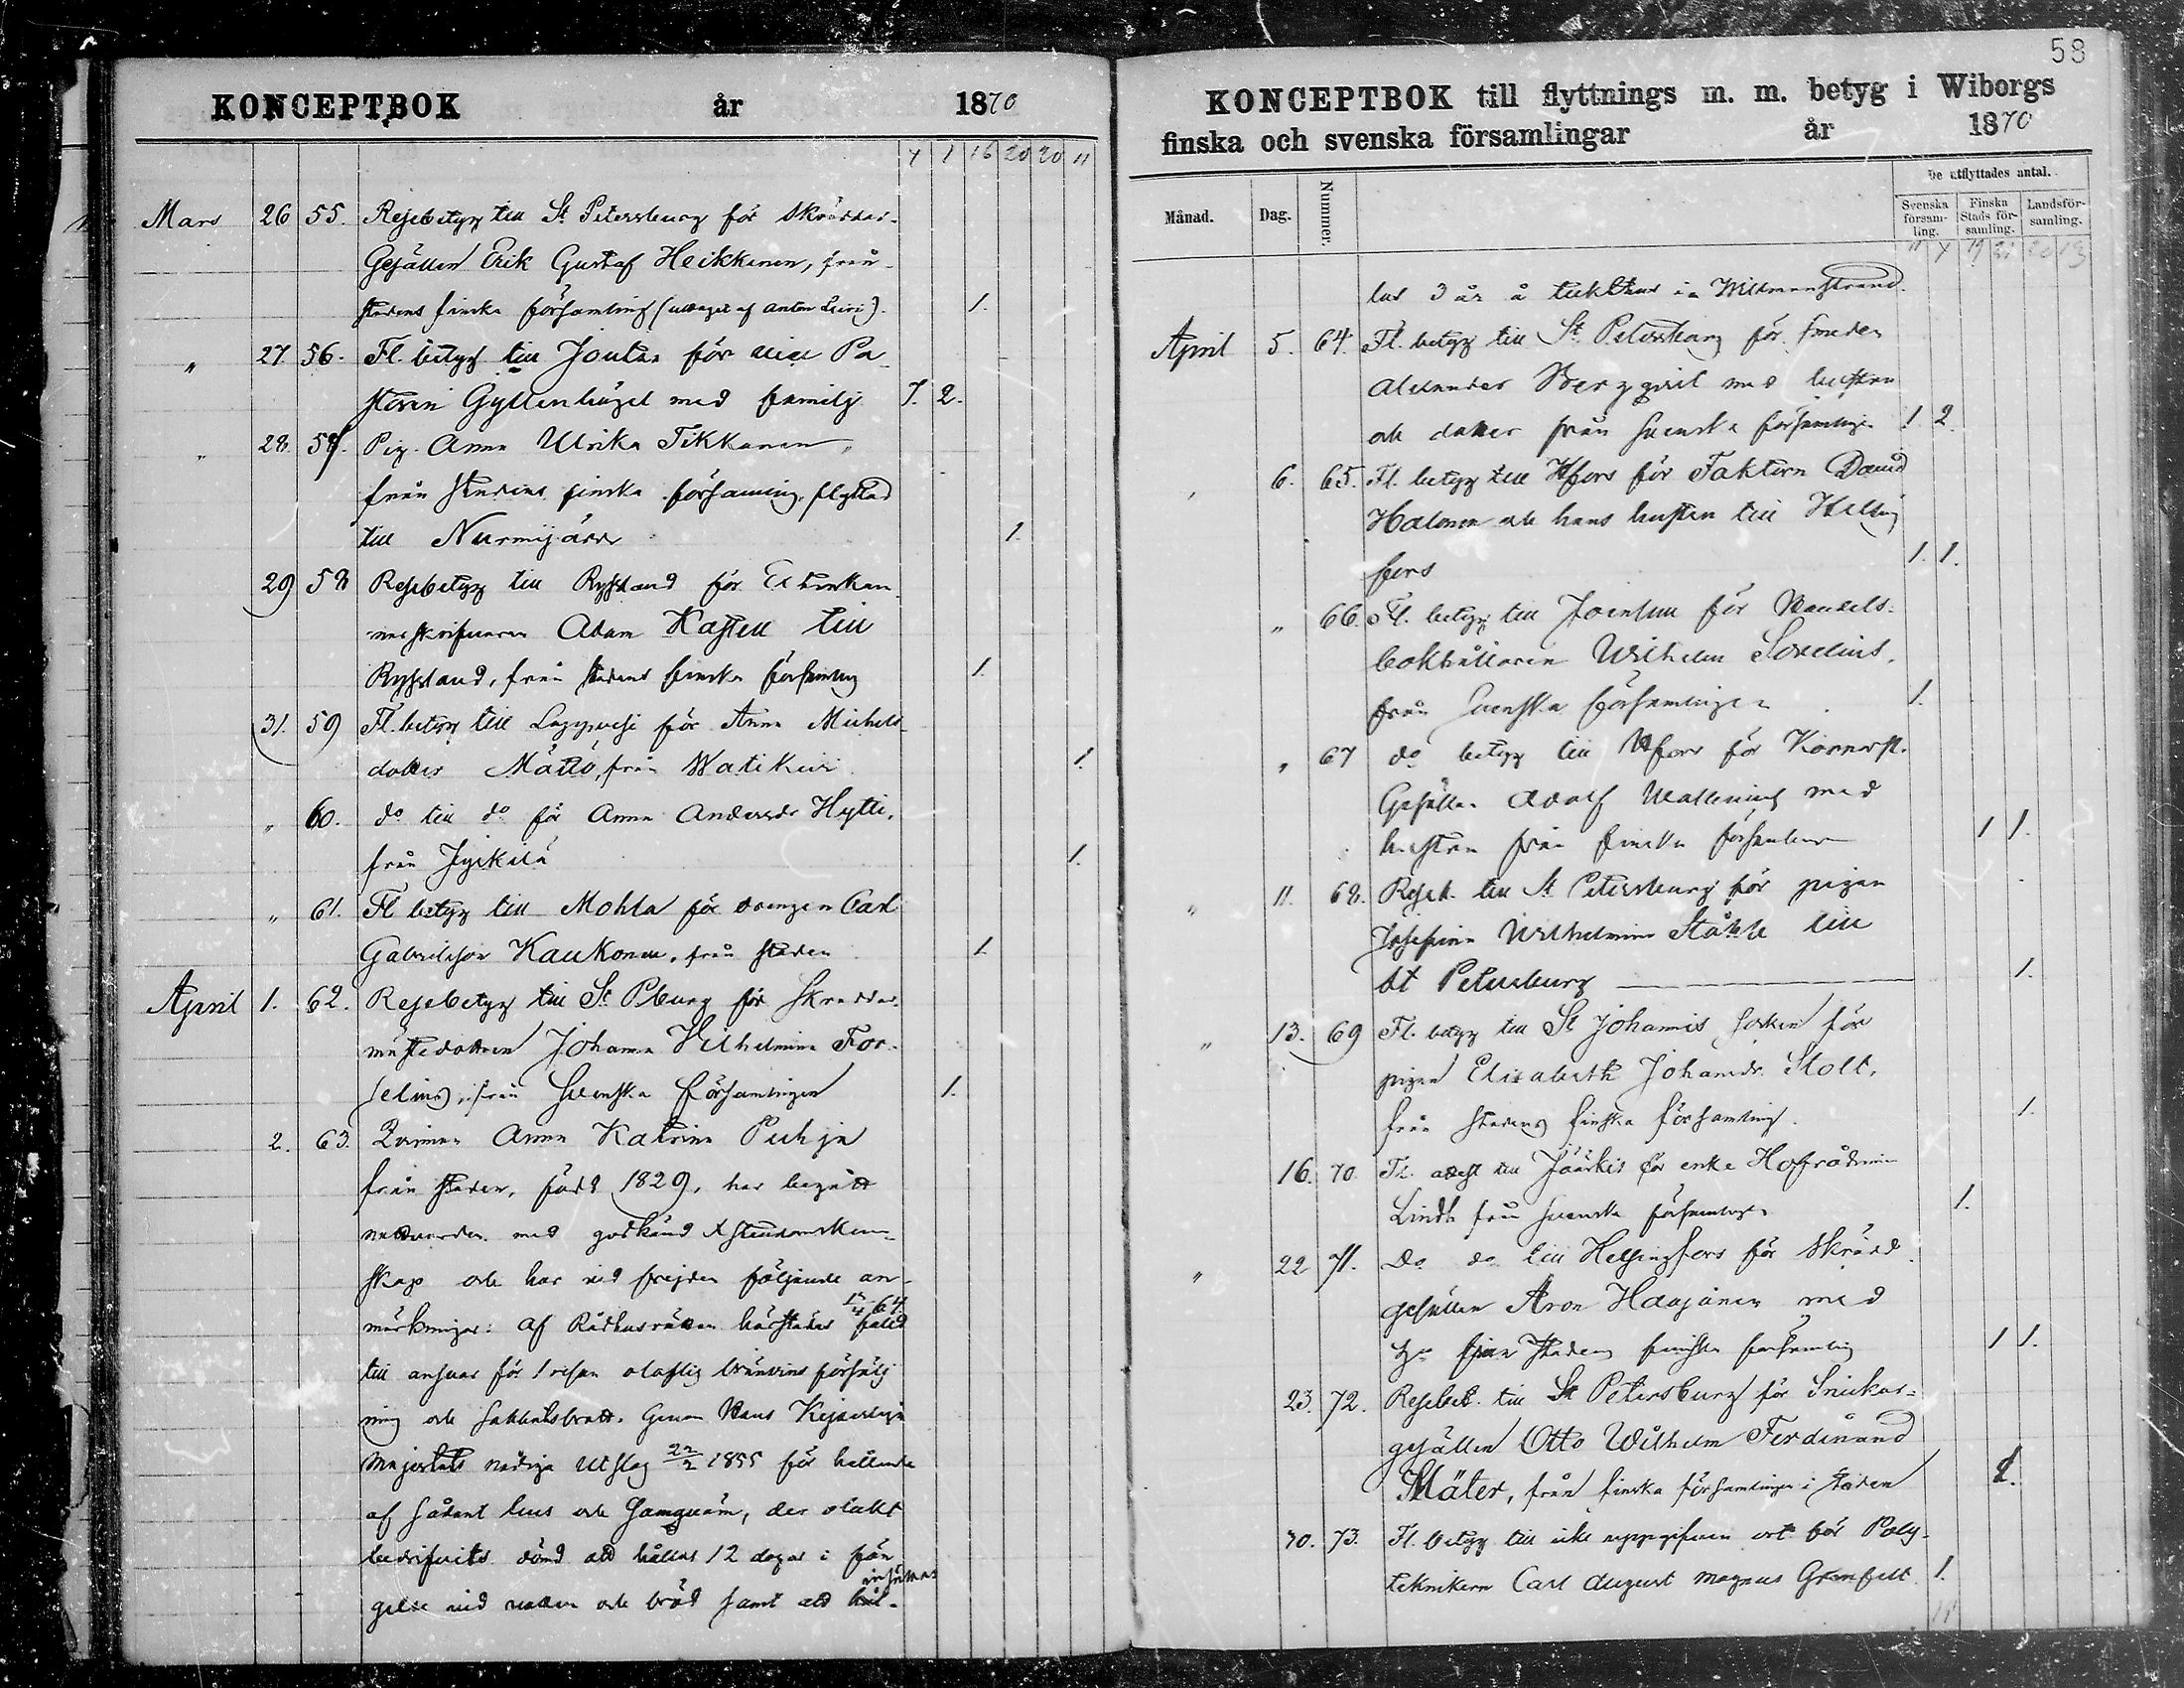 KONCEPTBOK år 1870
7 1 16 20 20 11
Mars 26 55. Resebetyg till St Petersburg för skräddar-
Gesällen Erik Gustaf Heikkinen, från
stadens finska församling (uttaget af Anton Leiri). 1.
" 27. 56. Fl. betyg till Joutse för vice Pa
storn Gyllenbögel med familj 1. 2.
" 28. 57. Pig. Anna Ulrika Tikkanen
från stadens finska församling, flyttad
till Nurmijärvi 1.
29 58 Resebetyg till Ryssland för Extra kam
merskrifvaren Adam Hasten till
Ryssland, från stadens finska församling 1.
31. 59 Fl. betyg till Lappvesi för Anna Michels
dotter Mättö, från Watikivi 1.
" 60. do till do för Anna Andersdr Hytti,
från Jyrkilä 1.
" 61. Fl betyg till Mohla för drengen Carl
Gabrielsson Kaukonen, från staden 1
April 1. 62. Resebetyg till St Pburg för Skräddar-
mästedottren Johanna Vilhelmina For-
selius, från Svenska församlingen 1.
2. 63. Qvinnan Anna Katrina Puhja
från staden, född 1829, har begått
nattvarden med godkänd kristendomskun-
skap och har vid frejden följande an-
märkningar: af Rådhusrätten härstädes 64. fälld
till ansvar för 1 resan olaglig brännvins försälj
ning och sabbatsbrott. Genom Hans Kejserliga
Majestäts nådiga Utslag 22/2 1855 för hållande
af sådant hus och samqväm, der otukt
bedrifvits dömd att hållas 12 dagar i fän
gelse vid vatten och bröd samt att hål-
58
KONCEPTBOK till flyttnings m. m. betyg i Wiborgs
finska och svenska församlingar år 1870
Månad. Dag. Nummer. De utflyttades antal.
Svenska församling. Finska Stads församling. Landsförsamling.
las 3 år å tukthus i Willmanstrand.
April 5. 64. Fl. betyg till St. Petersburg för smeden
Alexander Bergqvist med hustru
och dotter från svenska församlingen 1 2.
6. 65. Fl. betyg till Hfors för Faktorn David
Halonen och hans hustru till Helsing
fors 1. 1.
" 66. Fl. betyg till Joensuu för Handels-
bokhållaren Wilhelm Sorelius,
från Svenska församlingen 1.
" 67 do betyg till Hfors för Kornvst.
Gesällen Adolf Wallenius med
hustru från finska församlingen 1 1.
" 11. 68. Reseb. till St Petersburg för pigan
Josefina Wilhelmina Ståhle till
St Petersburg 1.
" 13. 69 Fl. betyg till St Johannis socken för
pigan Elisabeth Johansdr. Stolt,
från stadens finska församling. 1.
16. 70. Fl. attest till Jääskis för enke Hofrådinnan
Lindh från svenska församlingen 1.
" 22 71. Do do till Helsingfors för skrädd.
gesällen Aron Haajanen med
från stadens finska församling 1 1.
23. 72. Resebet. till St Petersburg för Snickar-
gesällen Otto Wilhelm Ferdinand
Mäler, från finska församlingen i staden 1.
30. 73. Fl. betyg till icke uppgifven ort för Poly-
teknikern Carl August Magnus Granfelt 1.
11